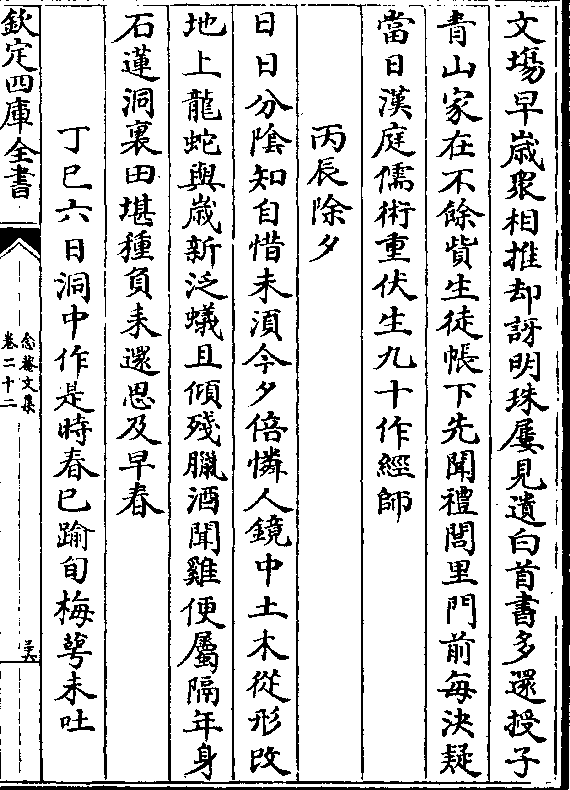 文塲早歲衆相推却訝明珠屢見遺白首書多還授子
青山家在不餘貲生徒帳下先聞禮閭里門前每決疑
當日漢庭儒術重伏生九十作經師
丙辰除夕
日日分陰知自惜未須今夕倍憐人鏡中土木從形改
地上龍蛇與歲新泛蟻且傾殘臘酒聞雞便屬隔年身
石蓮洞裏田堪種負耒還思及早春
丁巳六日洞中作是時春已踰旬梅萼未吐
欽定四庫全書
念菴文集
卷二十二